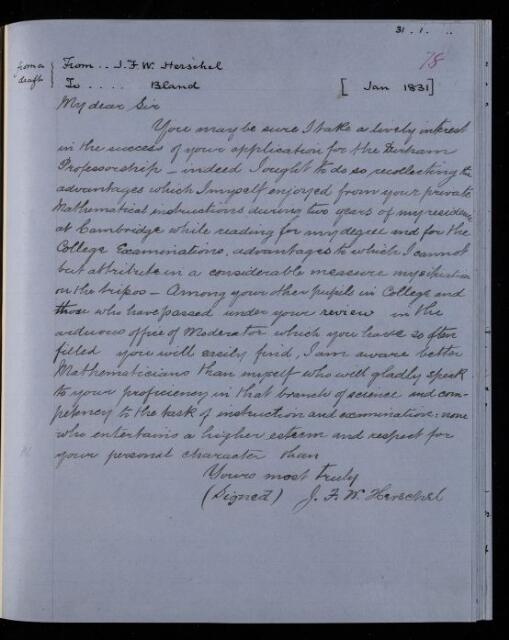 31 . 1 . ..
78
from a
draft
From .. J. F. W. Herschel
To . . . . Bland [ Jan 1831]
My dear Sir
You may be sure I take a lively interest
in the success of your application for the Durham
Professorship – indeed I ought to do so recollecting the
advantages which I myself enjoyed from your private
Mathematical instructions during two years of my residence
at Cambridge while reading for my degree and for the
College Examinations, advantages to which I cannot
but attribute in a considerable measure my situation
on the tripos – Among your other pupils in College and
those who have passed under your review in the
arduous office of Moderator which you have so often
filled you will easily find, I am aware better
Mathematicians than myself who will gladly speak
to your proficiency in that branch of science and com-
petency to the task of instruction and examination: none
who entertains a higher esteem and respect for
your personal character than
Yours most truly
(Signed) J. F. W. Herschel